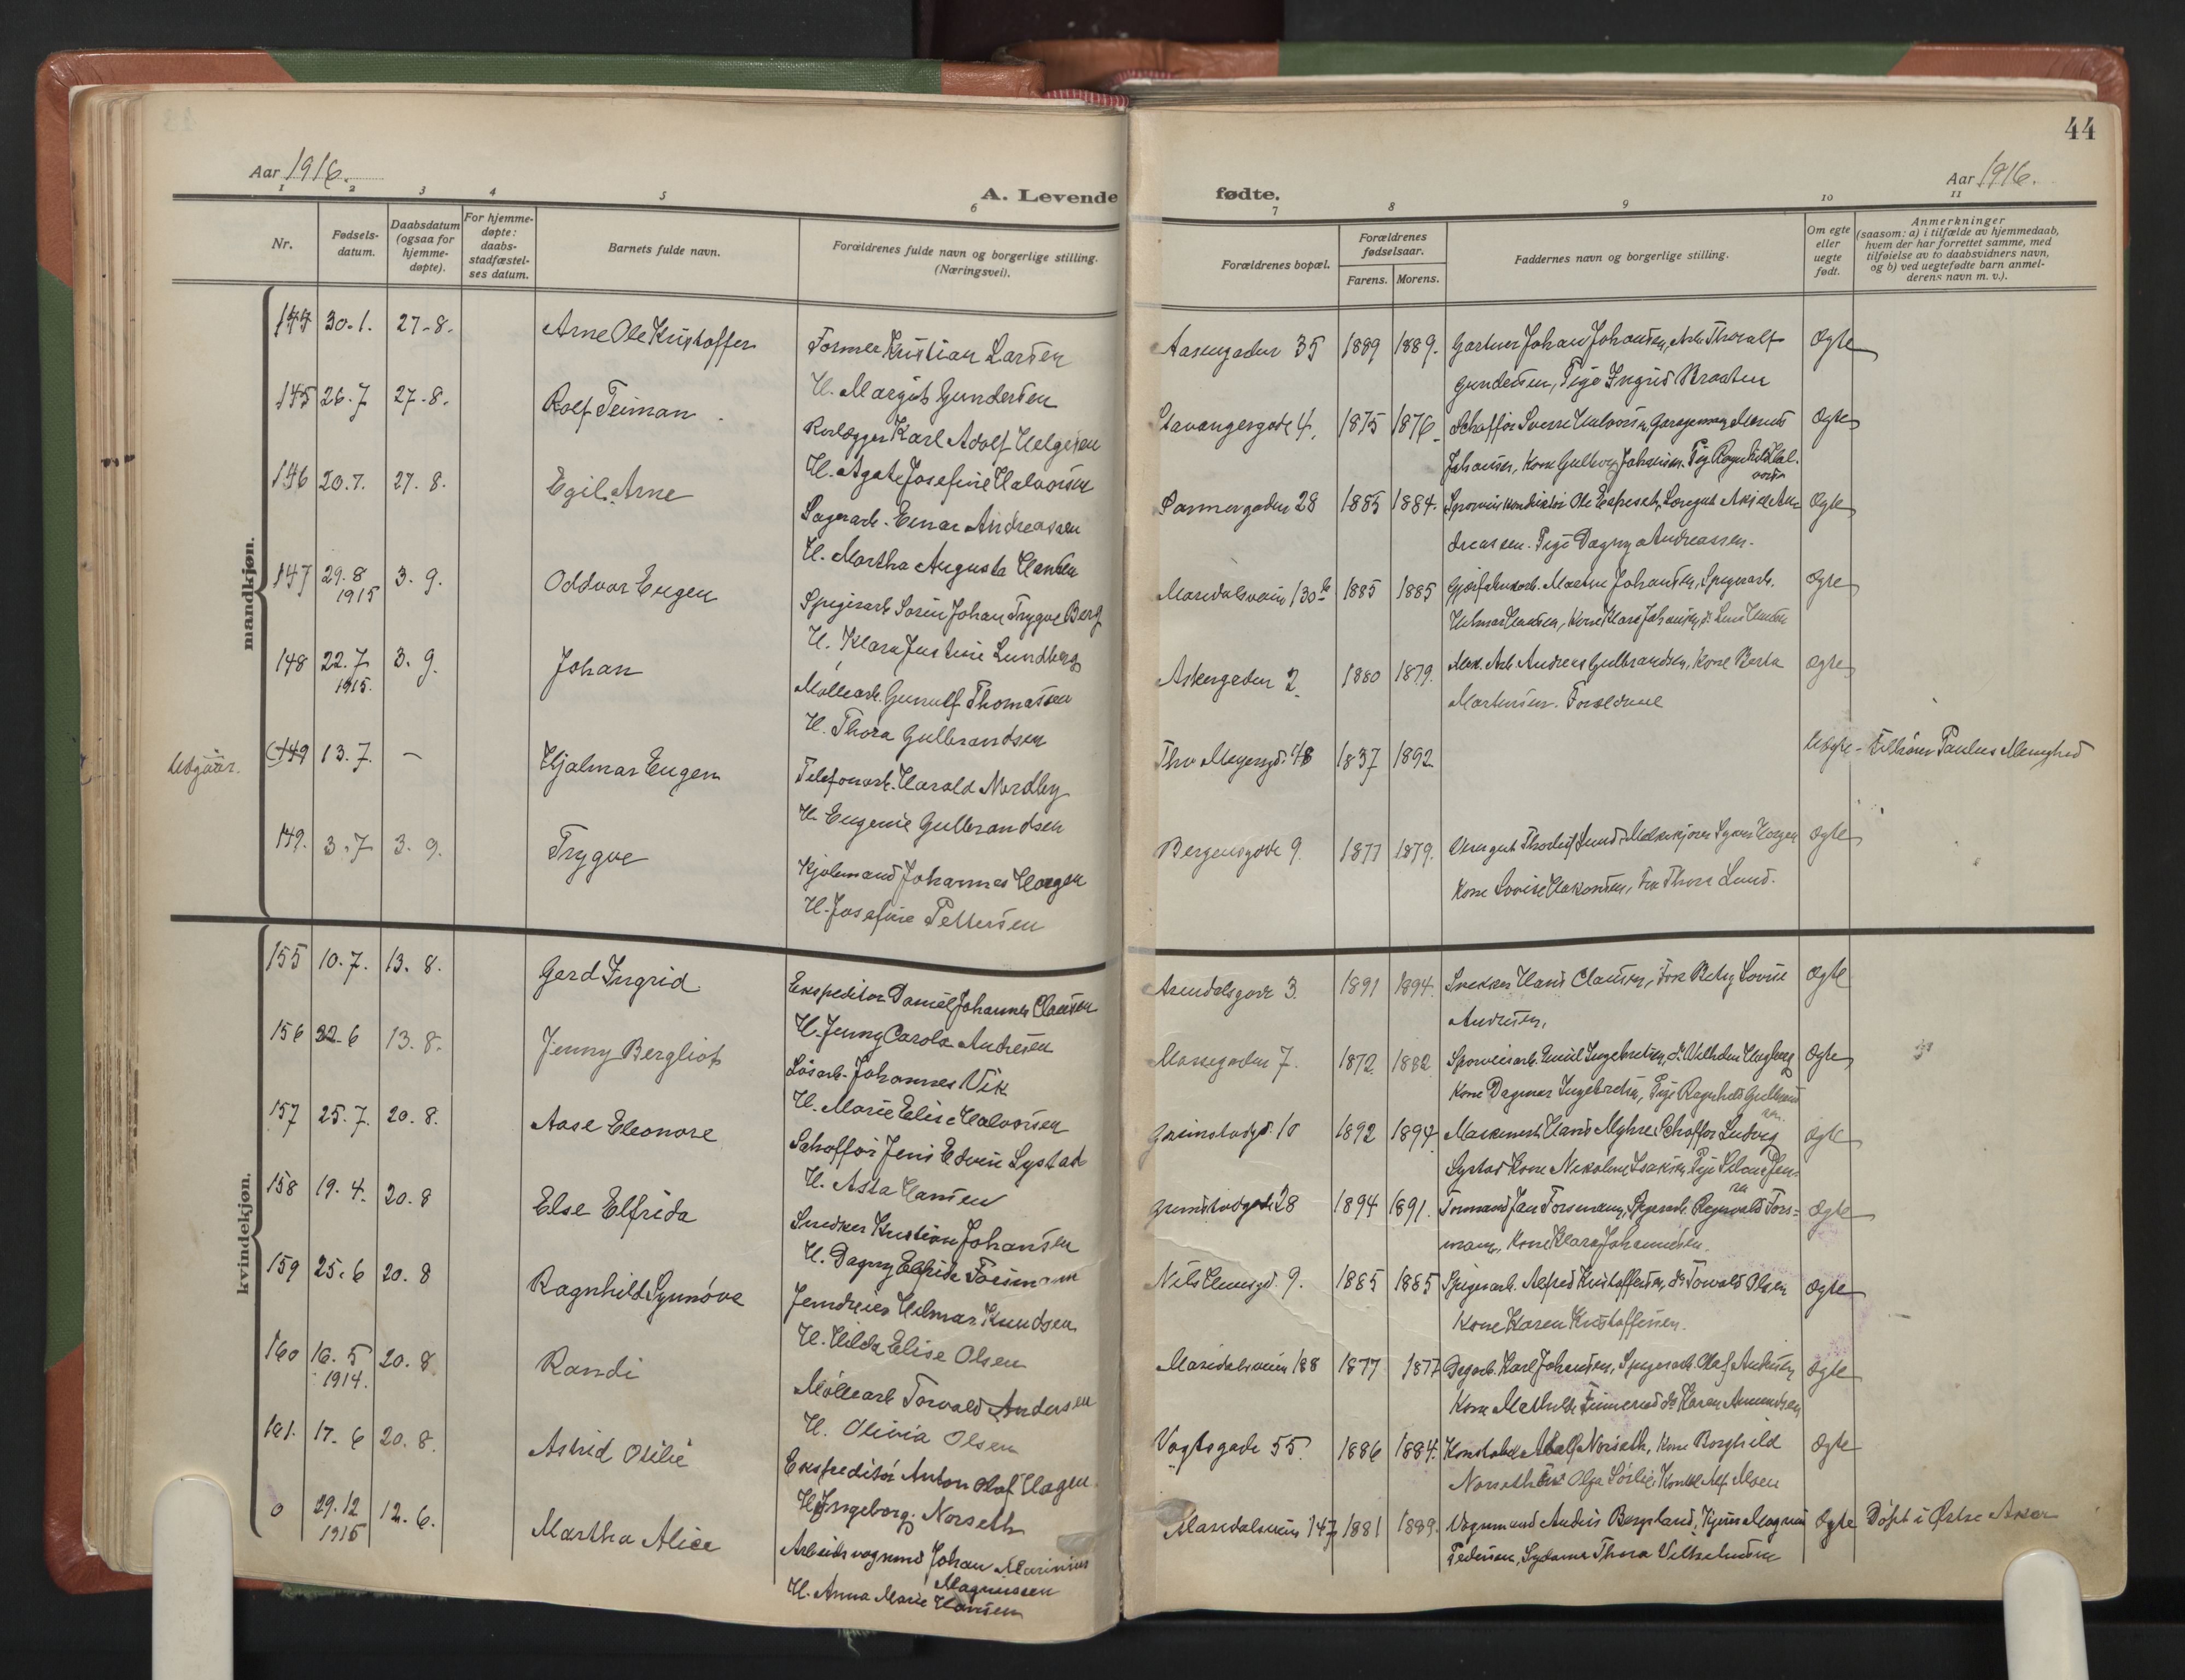 44
Aar 1916.
Aar 1916.
A. Levende fødte.
1 2 3 4 5 6 7 8 9 10 11
Nr.
Fødsels-
datum.
Daabsdatum
(ogsaa for
hjemme-
døpte).
For hjemme-
døpte:
daabs-
stadfæstel-
ses datum.
Barnets fulde navn.
Forældrenes fulde navn og borgerlige stilling.
(Næringsvei).
Forældrenes bopæl.
Forældrenes
fødselsaar.
Farens. Morens.
Faddernes navn og borgerlige stilling.
Om egte
eller
uegte
født.
Anmerkninger
(saasom: a) i tilfælde av hjemmedaab,
hvem der har forrettet samme, med
tilføielse av to daabsvidners navn,
og b) ved uegtefødte barn anmel-
derens navn m. v.).
mandkjøn.
144 30.1. 27-8. Arne Ole Kristoffer
Former Kristian Larsen
H. Margit Gundersen
Aasengaden 35 1889 1889. Gartner Johan Johansen, Arb. Thoralf Ægte
Gundersen, Pige Ingrid Braaten
145 26.7 27-8. Rolf Teiman
Rørlægger Karl Adolf Helgesen
H. Agate Josefine Halvorsen
Stavangergade 4. 1875 1876 Schaffør Sverre Halvorsen, Ægte
Johansen, Kone Gulborg Johansen. Pig Ragnhild Hal-
vorsen
146 20.7. 27.8. Egil Arne
Lagerarb. Einar Andreassen
H. Martha Augusta Hansen
28 1885 1884. Sporveiskonduktør Ole Ægte
dreassen. Pige Dagny Andreassen.
147 29.8 1915 3.9. Oddvar Eugen
Spigerarb. Søren Johan Trygve Berg
H. Klara Justine Lundberg
Maridalsveien 130 b 1885 1885 Martin Johansen, Spigerarb. Ægte
Hilmar Hansen, Kone Klara Johansen,
148 22.7 1915. 3.9. Johan
Møllearb. Gunulf Thomassen
H. Thora Gulbrandsen
Askergaden 2. 1880 1879. Mek. Arb. Andreas Gulbrandsen, Kone Berta Ægte
Martinsen. Forældrene
Utgaar. (149 13.7. — Hjalmar Eugen
Telefonarb. Harald Nordby
H. Eugenie Gulbrandsen
Thv. Meyersgd. 48 1837 1892 Uægte - Tilhører Paulus Menighed
149. 3.7 3.9. Trygve
Kjølemand Johannes Horgen
H. Josefine Pettersen
Bergensgade 9. 1877 1879. Thorleif Lund, Ægte
Kone Lovise Haakonsen, Frk Thora Lund.
kvindekjøn.
155 10.7. 13.8. Gerd Ingrid.
Ekspeditør Daniel Johannes Clausen
H. Jenny Carola Andresen
Arendalsgade 3. 1891 1894. Snekker Hans Clausen, Frk Betsy Lovise Ægte
Andresen,
156 22-6 13.8. Jenny Bergliot
Løsarb. Johannes Vik
H. Marie Elise Halvorsen
Mossegaden 7. 1872 1882 Sporveisarb. Emil Ingebretsen, Ægte
Kone Dagmar Ingebretsen, Pige Ragnhild
157 25.7. 20.8. Aase Eleonore
Schaffør Jens Edvin Lystad
H. Asta Hansen
Grimstadgd. 10 1892 1894 Maskinist Hans Myhre, Schaffør Ludvig Ægte
Lystad Kone Nikoline Isaksen,
158 19.4. 20.8 Else Elfrida
Snedker Kristian Johansen
H. Dagny Elfride Forsmann
Grimstadgade 28 1894 1891. Formand Jan Forsmann, Ragnvald Fors- Ægte
mann, Kone Klara Johannesen.
159 25.6 20.8 Ragnhild Synnøve
Jerndreier Hilmar Knudsen
H. Hilda Elise Olsen
Nils Huusgd. 9. 1885 1885 Spigerarb. Alfred Kristoffersen, do Torvald Olsen Ægte
Kone Karen Kristoffersen.
160 16.5 1914. 20.8. Randi
Møllearb Torvald Andersen
H. Olivia Olsen
Maridalsveien 188 1877 1877 Karl Johansen, Spigerarb. Olaf Andersen Ægte
Kone Mathilde do Karen Amundsen
161. 17.6 20.8. Astrid Otilie
Ekspeditør Anton Olaf Hagen.
H. Ingeborg Norseth
Vogtsgade 55. 1886 1884. Konstabel Adolf Norseth, Kone Borghild Ægte
Norseth Olga Sørlie, Alf Moen
0 29.12 1915 12.6. Martha Alice
Arbeidsvognmd Johan Marinius
Magnussen
H. Anna Marie Hansen
Maridalsveien 147 1881 1889. Vognmand Anders Bergsland, Magnus Ægte Døpt i Østre Aker
Pedersen, Sydame Thora Vilhelmsen